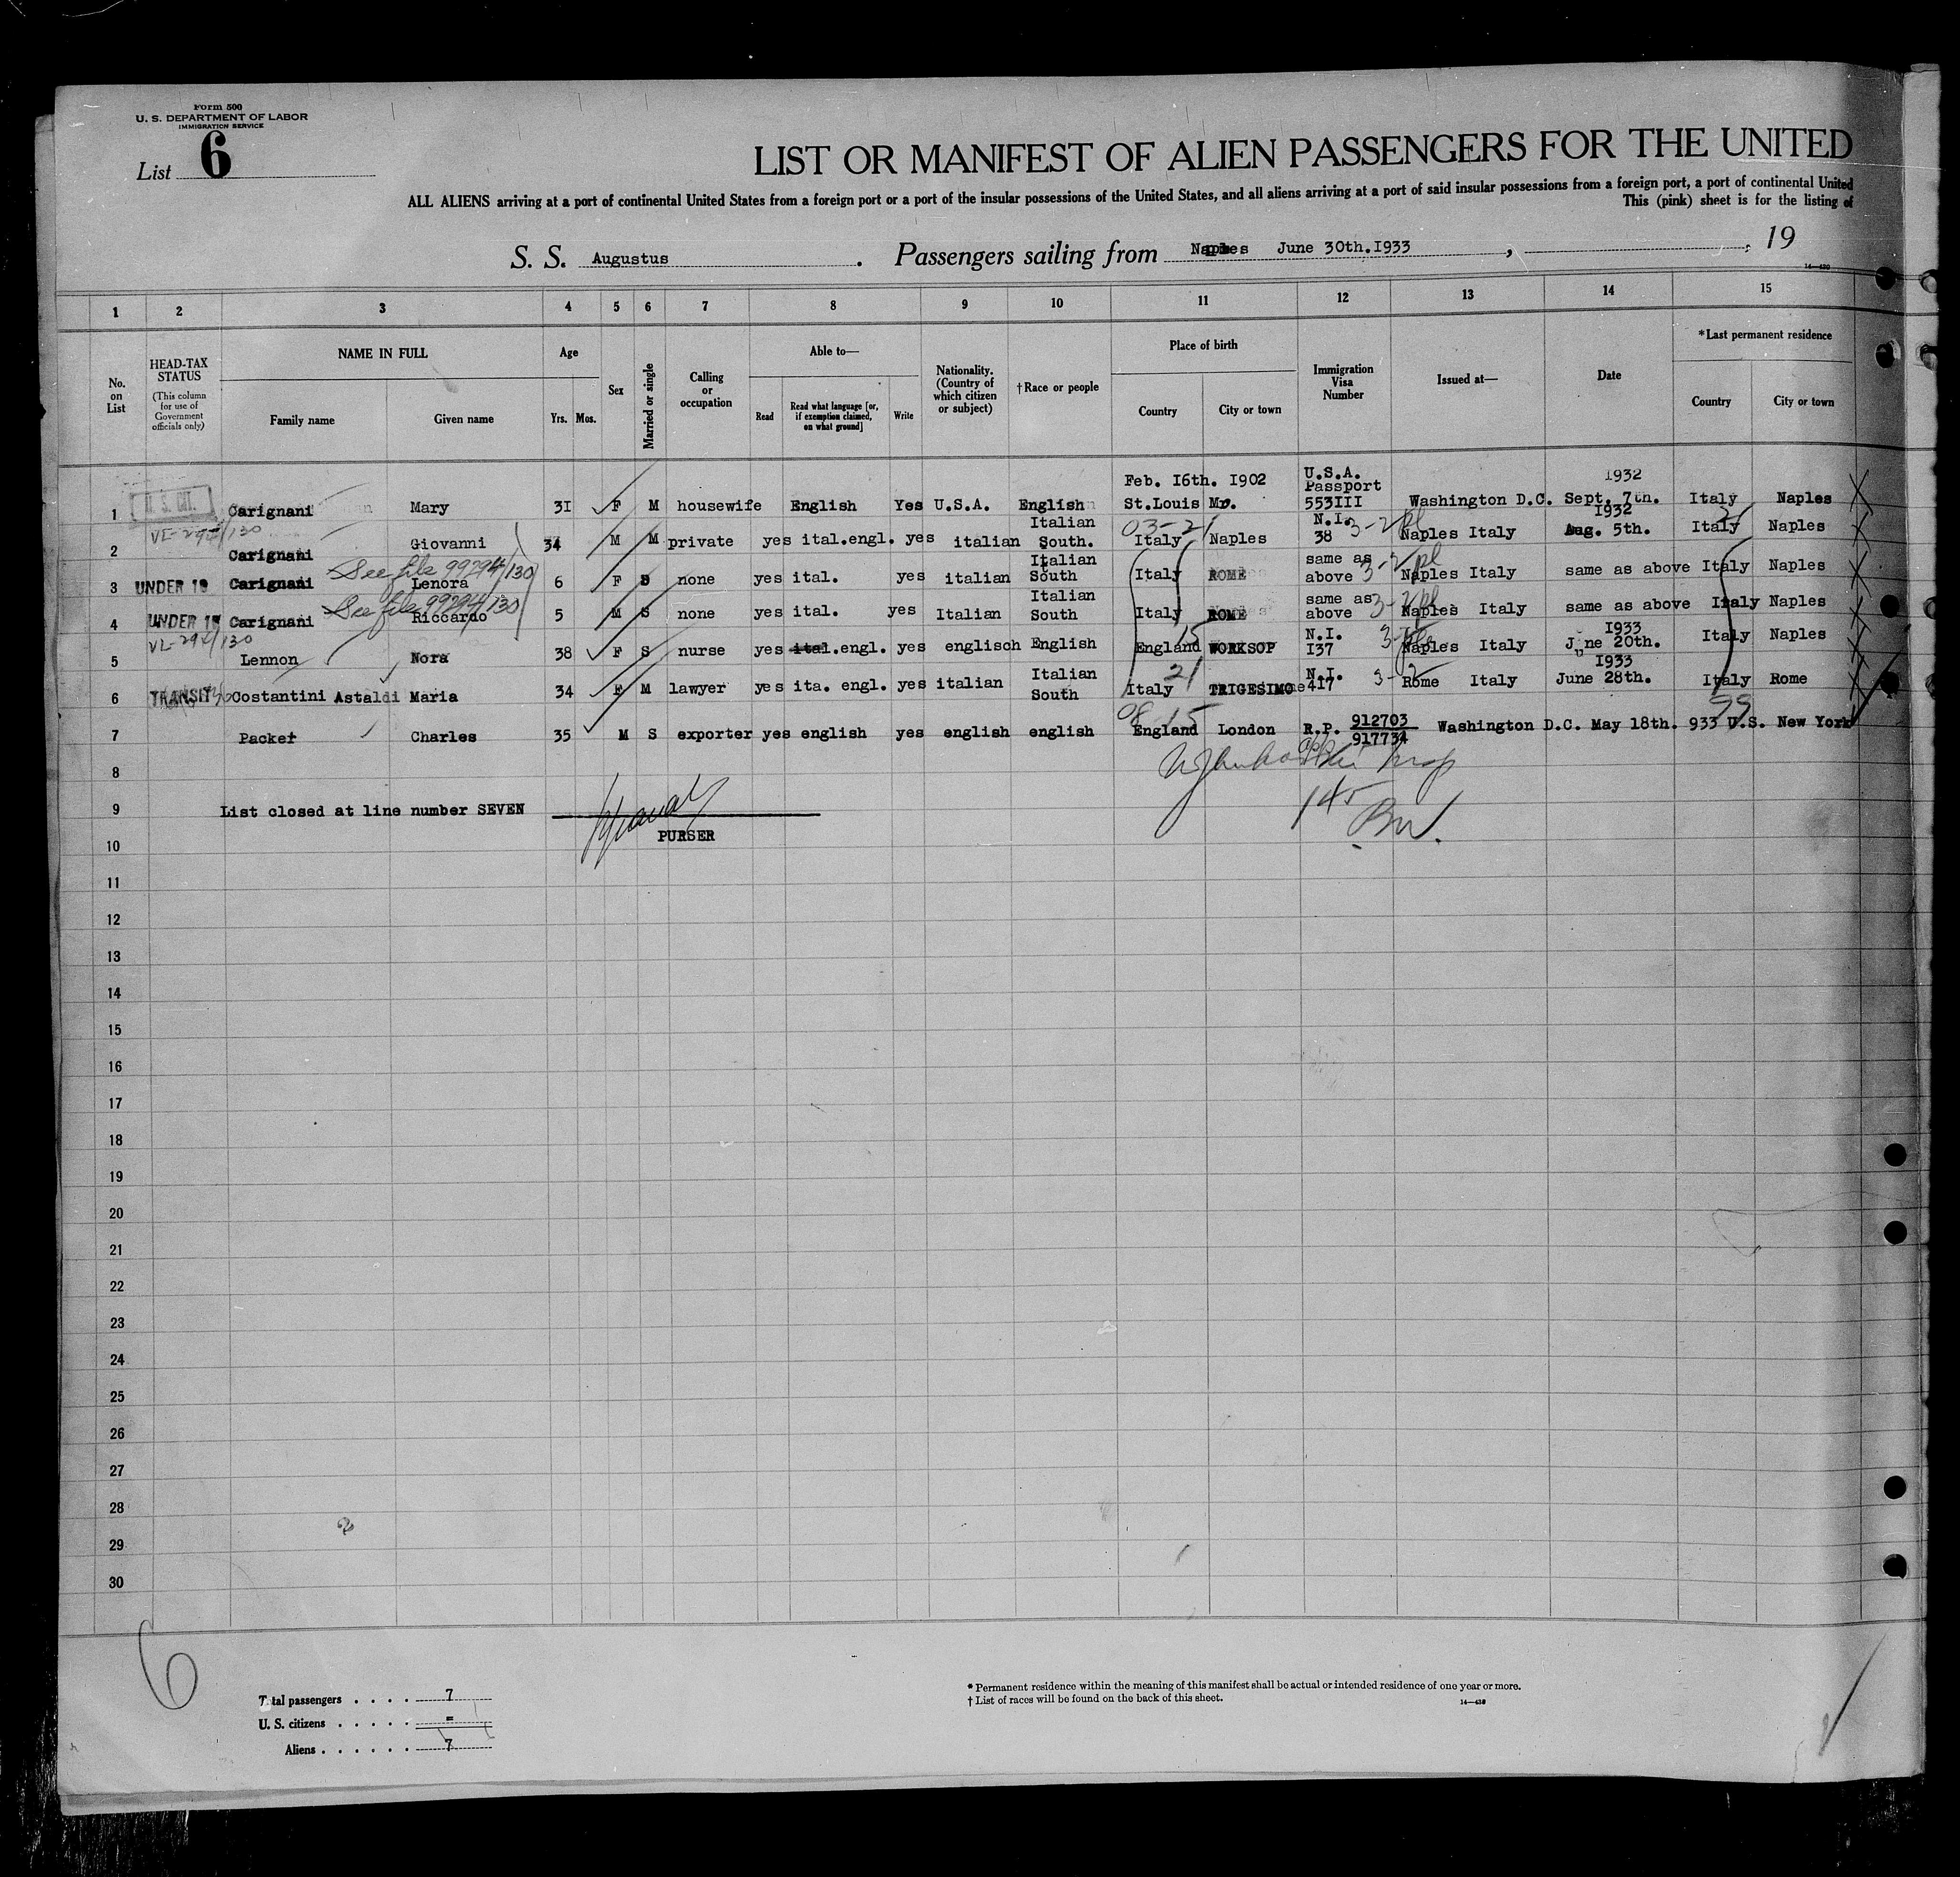 Form 500
U. S. DEPARTMENT OF LABOR
IMMIGRATION SERVICE
List 6
LIST OR MANIFEST OF ALIEN PASSENGERS FOR THE UNITED
ALL ALIENS arriving at a port of continental United States from a foreign port or a port of the insular possessions of the United States, and all aliens arriving at a port of said insular possessions from a foreign port, a port of continental United
This (pink) sheet is for the listing of
S. S. Augustus . Passengers sailing from Naples June 30th.I933 , , 19
14—430
1 2 3 4 5 6 7 8 9 10 11 12 13 14 15
No. on List
HEAD-TAX STATUS
(This column for use of Government officials only)
NAME IN FULL
Family name
Given name
Age
Yrs. Mos.
Sex
Married or single
Calling or occupation
Able to—
Read
Read what language [or, if exemption claimed, on what ground]
Write
Nationality. (Country of which citizen or subject)
†Race or people
Place of birth
Country
City or town
Immigration Visa Number
Issued at—
Date
*Last permanent residence
Country
City or town
Feb. I6th. I902 U.S.A. Passport I932
1 Carignani Mary 3I F M housewife English Yes U.S.A. English St.Louis Mo. 553III Washington D.C. Sept. 7th. Italy Naples
03-21 N.I. 3-2 pl I932 21
2 Carignani Giovanni 34 M M private yes ital.engl. yes italian Italian South. Italy Naples 38 Naples Italy Aug. 5th. Italy Naples
See file 99294/130
3 UNDER 16 Carignani Lenora 6 F S none yes ital. yes italian Italian South Italy ROME same as above 3-2 pl Naples Italy same as above Italy Naples
See file 99294/130
4 UNDER 16 Carignani Riccardo 5 M S none yes ital. yes Italian Italian South Italy ROME same as above 3-2 pl Naples Italy same as above Italy Naples
15 N.I. I933
5 Lennon Nora 38 F S nurse yes ital.engl. yes englisch English England WORKSOP I37 Naples Italy June 20th. Italy Naples
21 N.I. 3-2 I933
6 TRANSIT Costantini Astaldi Maria 34 F M lawyer yes ita. engl. yes italian Italian South Italy TRIGESIMO 417 Rome Italy June 28th. Italy Rome
08 15 99
7 Packer Charles 35 M S exporter yes english yes english english England London R.P. 912703 917734 Washington D.C. May 18th. 933 U.S. New York
8
145
9 List closed at line number SEVEN
PURSER
10
11
12
13
14
15
16
17
18
19
20
21
22
23
24
25
26
27
28
29
30
6
Total passengers . . . . 7
U. S. citizens . . . . . =
Aliens . . . . . . 7
* Permanent residence within the meaning of this manifest shall be actual or intended residence of one year or more.
† List of races will be found on the back of this sheet.
14—430